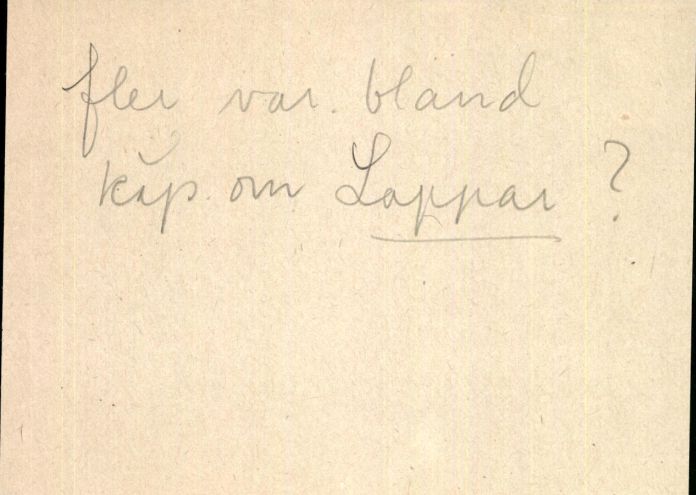 fler var. bland
kap. om Lappar ?